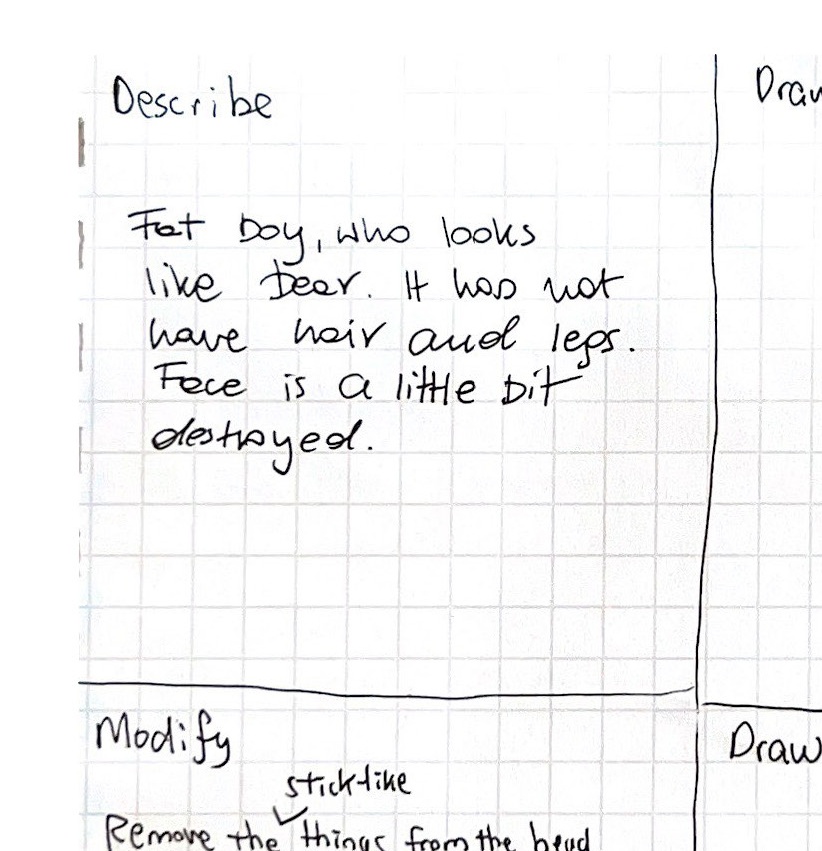 Describe
Fat boy, who looks
like bear. It has not
have hair and legs.
Face is a little bit
destroyed.
Draw
Modify
stick-like
Remove the things from the head
Draw